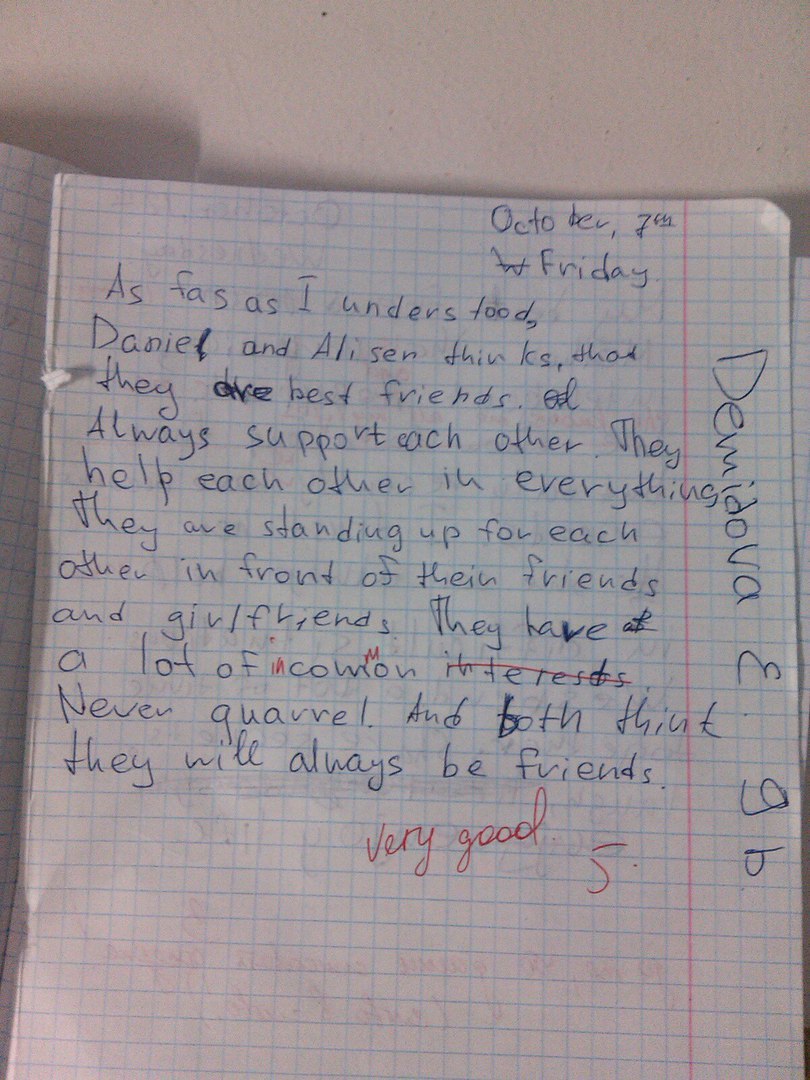 October, 7th
Friday.
As fas as I understood,
Daniel and Alisen thinks, that
they are best friends.
Always support each other. They
help each other in everything
They are standing up for each
other in front of their friends
and girlfriends. They have
a lot of in common interests.
Never quarrel. And both think
they will always be friends.
very good.
5.
Demidova E. 9b